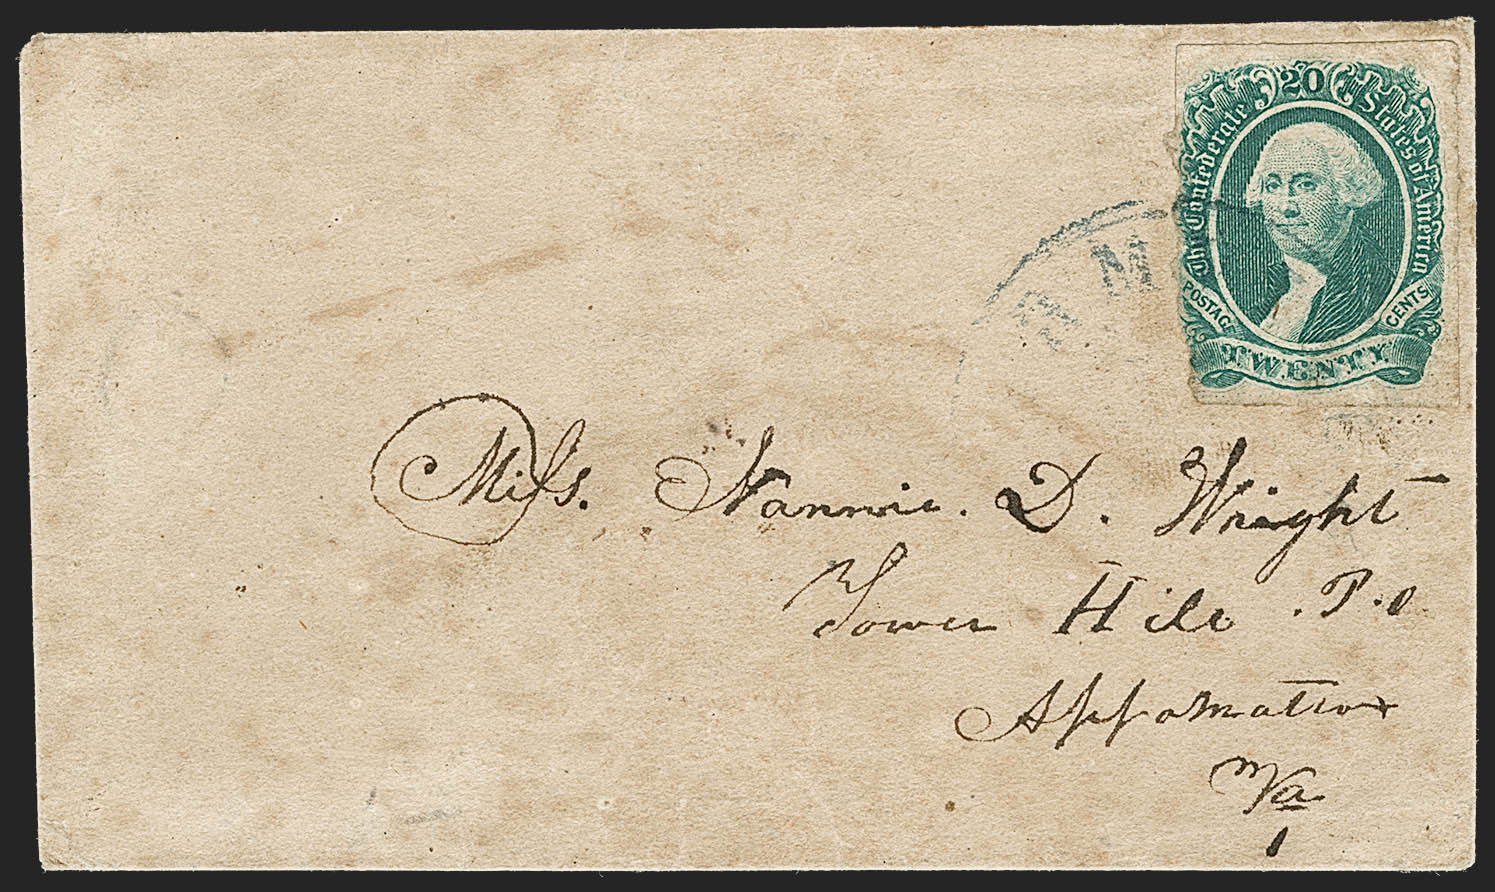 20
The Confederate States of America
POSTAGE CENTS
TWENTY
Miss. Nannie. D. Wright
Tower Hill . P.O
Appomattox
Va